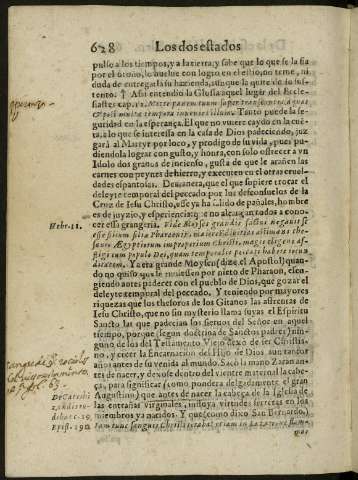 628 Los dos estados
pulso a los tiempos, y a la tierra; y sabe que lo que se la fia
por el otoño, lo buelve con logro en el estio, no teme, ni
duda de entregarla su hazienda, aunque la quite de su sus-
tento. † Assi entendio la Glossa aquel lugar del Eccle-
siastes cap. 11. Mitte panem tuum super transeuntes aquas
& post multa tempora invenies illum. Tanto puede la se-
guridad en la esperança. El que no viuere caydo en la cue-
ta, a lo que se interessa en la casa de Dios padeciendo, juz
gará al Martyr por loco, y prodigo de su vida, pues pu-
diendola lograr con gusto, y honra, con solo ofrecer a vn
Idolo dos granos de incienso, gusta de que le arañen las
carnes con peynes de hierro, y executen en el otras cruel-
dades espantosas. De manera, que el que supiere trocar el
deleyte temporal del peccado por los desconsuelos de la
Cruz de Iesu Christo, esse ya ha salido de pañales, hombre
es de juyzio, y esperiencia; que no alcançan todos a cono-
cer esta grangeria. Fide Moyses grandis factus negavit se
esse filium filiæ Pharaonis, maiores divitias æstimans the-
sauro Ægyptiorum improperium Christi, magis eligens af-
fligi cum populo Dei, quam temporalis peccati habere iucun
ditatem. Ya era grande Moyses (dize el Apostol) quan-
do no quiso que le tuviessen por nieto de Pharaon, esco-
giendo antes padecer con el pueblo de Dios, que gozar el
deleyte temporal del peccado. Y teniendo por mayores
riquezas que los thesoros de los Gitanos las afrentas de
Iesu Christo, que no sin mysterio llama suyas el Espiritu
Sancto las que padecian los siervos del Señor en aquel
tiempo, porque (segun doctrina de Sanctos padres) nin-
guno de los del Testamento Viejo dexó de ser Christia-
no, y creer la Encarnacion del Hijo de Dios aun tantos
años antes de su venida al mundo. Sacó la mano Zaran an-
tes de nacer, y dexóse dentro del vientre maternal la ca-
beça, para significar (como pondera delgadamente el gran
Augustino) que antes de nacer la cabeça de la Iglesia de
las entrañas virginales, influya virtudes secretas en los
miembros ya nacidos. Y que (como dixo San Bernardo,)
tam tunc sanguis Christi
Hebr. 11.
De Catechi
zandis ru-
dib. c. 19.
Epist. 190